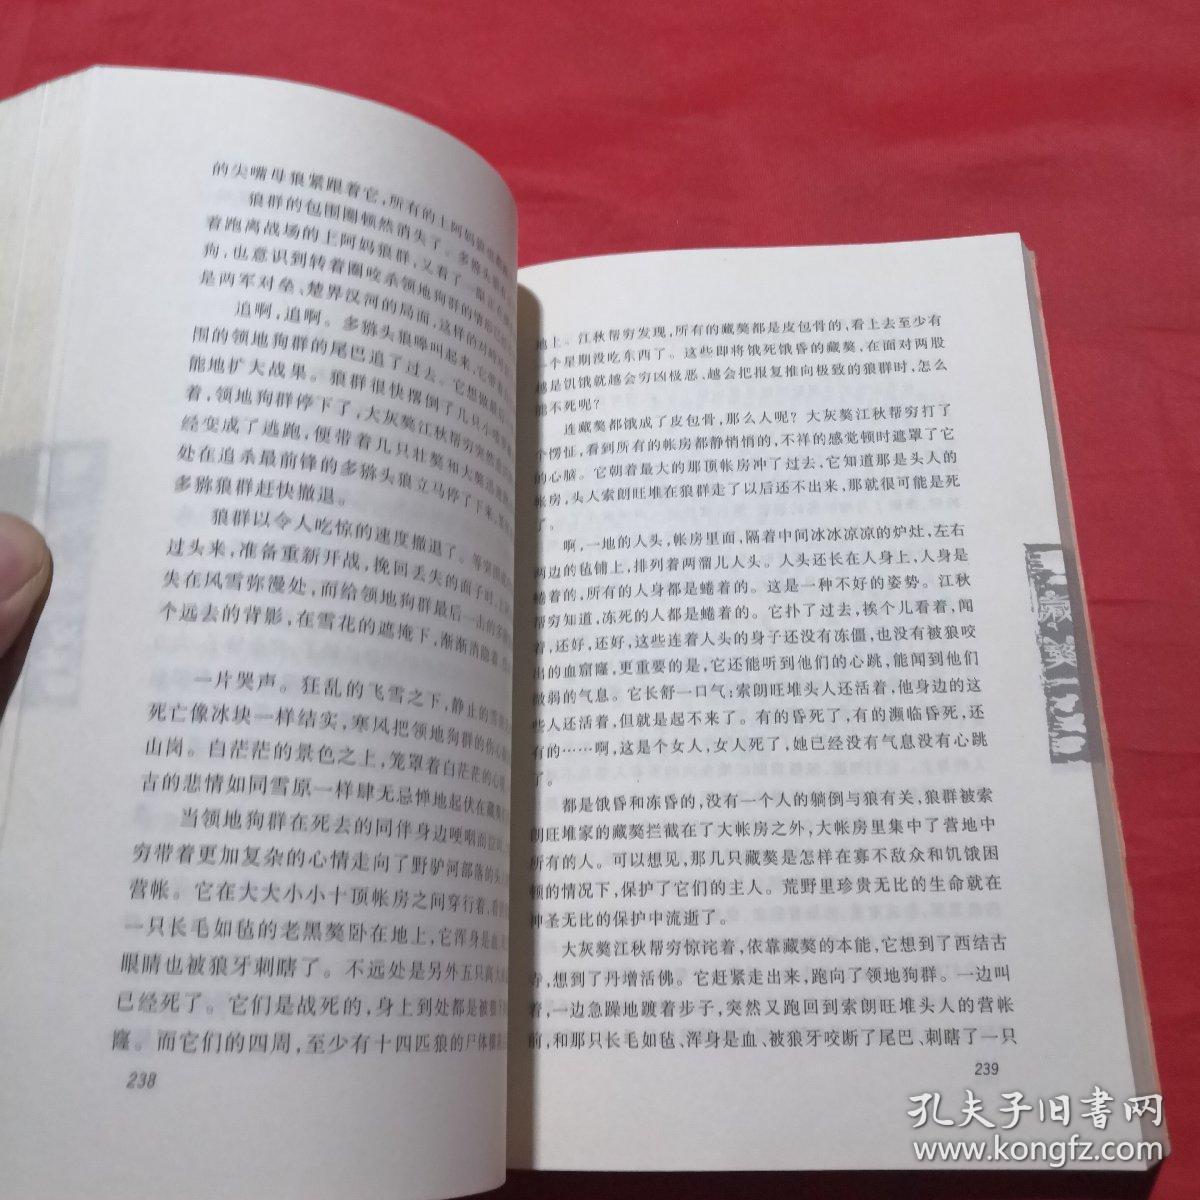 的尖嘴母狼紧跟着它，所有的上阿妈狼
狼群的包围圈顿然消失了。多猕头
着跑离战场的上阿妈狼群，又看了一眼正在
狗，也意识到转着圈咬杀领地狗群的情形已
是两军对垒、楚界汉河的局面，这样的对峙
追啊，追啊。多猕头狼嗥叫起来，它带着
围的领地狗群的尾巴追了过去。它想做最
能地扩大战果。狼群很快撂倒了几只小
着，领地狗群停下了，大灰獒江秋帮穷突然意
经变成了逃跑，便带着几只壮獒和大獒迅速
处在追杀最前锋的多猕头狼立马停了下来，
多猕狼群赶快撤退。
狼群以令人吃惊的速度撤退了。等
过头来，准备重新开战，挽回丢失的面子时，上
失在风雪弥漫处，而给领地狗群最后一击的多
个远去的背影，在雪花的遮掩下，渐渐消隐着
一片哭声。狂乱的飞雪之下，静止的雪
死亡像冰块一样结实，寒风把领地狗群的伤心
山岗。白茫茫的景色之上，笼罩着白茫茫的心
古的悲情如同雪原一样肆无忌惮地起伏在藏獒
当领地狗群在死去的同伴身边哽咽而
穷带着更加复杂的心情走向了野驴河部落的头
营帐。它在大大小小十顶帐房之间穿行着，看到
一只长毛如毡的老黑獒卧在地上，它浑身是血
眼睛也被狼牙刺瞎了。不远处是另外五只高大
已经死了。它们是战死的，身上到处都是被狼牙
窿。而它们的四周，至少有十四匹狼的尸体横
238
地上。江秋帮穷发现，所有的藏獒都是皮包骨的，看上去至少有
一个星期没吃东西了。这些即将饿死饿昏的藏獒，在面对两股
越是饥饿就越会穷凶极恶、越会把报复推向极致的狼群时，怎么
能不死呢？
连藏獒都饿成了皮包骨，那么人呢？大灰獒江秋帮穷打了
个愣怔，看到所有的帐房都静悄悄的，不祥的感觉顿时遮罩了它
的心脑。它朝着最大的那顶帐房冲了过去，它知道那是头人的
帐房，头人索朗旺堆在狼群走了以后还不出来，那就很可能是死
了。
啊，一地的人头，帐房里面，隔着中间冰冰凉凉的炉灶，左右
两边的毡铺上，排列着两溜儿人头。人头还长在人身上，人身是
蜷着的，所有的人身都是蜷着的。这是一种不好的姿势。江秋
帮穷知道，冻死的人都是蜷着的。它扑了过去，挨个儿看着，闻
着，还好，还好，这些连着人头的身子还没有冻僵，也没有被狼咬
出的血窟窿，更重要的是，它还能听到他们的心跳，能闻到他们
微弱的气息。它长舒一口气：索朗旺堆头人还活着，他身边的这
些人还活着，但就是起不来了。有的昏死了，有的濒临昏死，还
有的……啊，这是个女人，女人死了，她已经没有气息没有心跳
了。
都是饿昏和冻昏的，没有一个人的躺倒与狼有关，狼群被索
朗旺堆家的藏獒拦截在了大帐房之外，大帐房里集中了营地中
所有的人。可以想见，那几只藏獒是怎样在寡不敌众和饥饿困
顿的情况下，保护了它们的主人。荒野里珍贵无比的生命就在
神圣无比的保护中流逝了。
大灰獒江秋帮穷惊诧着，依靠藏獒的本能，它想到了西结古
寺，想到了丹增活佛。它赶紧走出来，跑向了领地狗群。一边叫
着，一边急躁地踱着步子，突然又跑回到索朗旺堆头人的营帐
前，和那只长毛如毡、浑身是血、被狼牙咬断了尾巴、刺瞎了一只
239
藏獒
孔夫子旧书网
www.kongfz.com